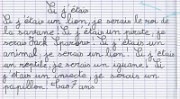 Si j'étais
Si j'étais un lion, je serais le roi de
la savane. Si j'étais un pirate, je
serais Jack Sparow. Si j'étais un
animal, je serais un lion. Si j'étais
un reptile, je serais un iguane. Si
j'étais un insecte, je serais un
papillon. 7 ans